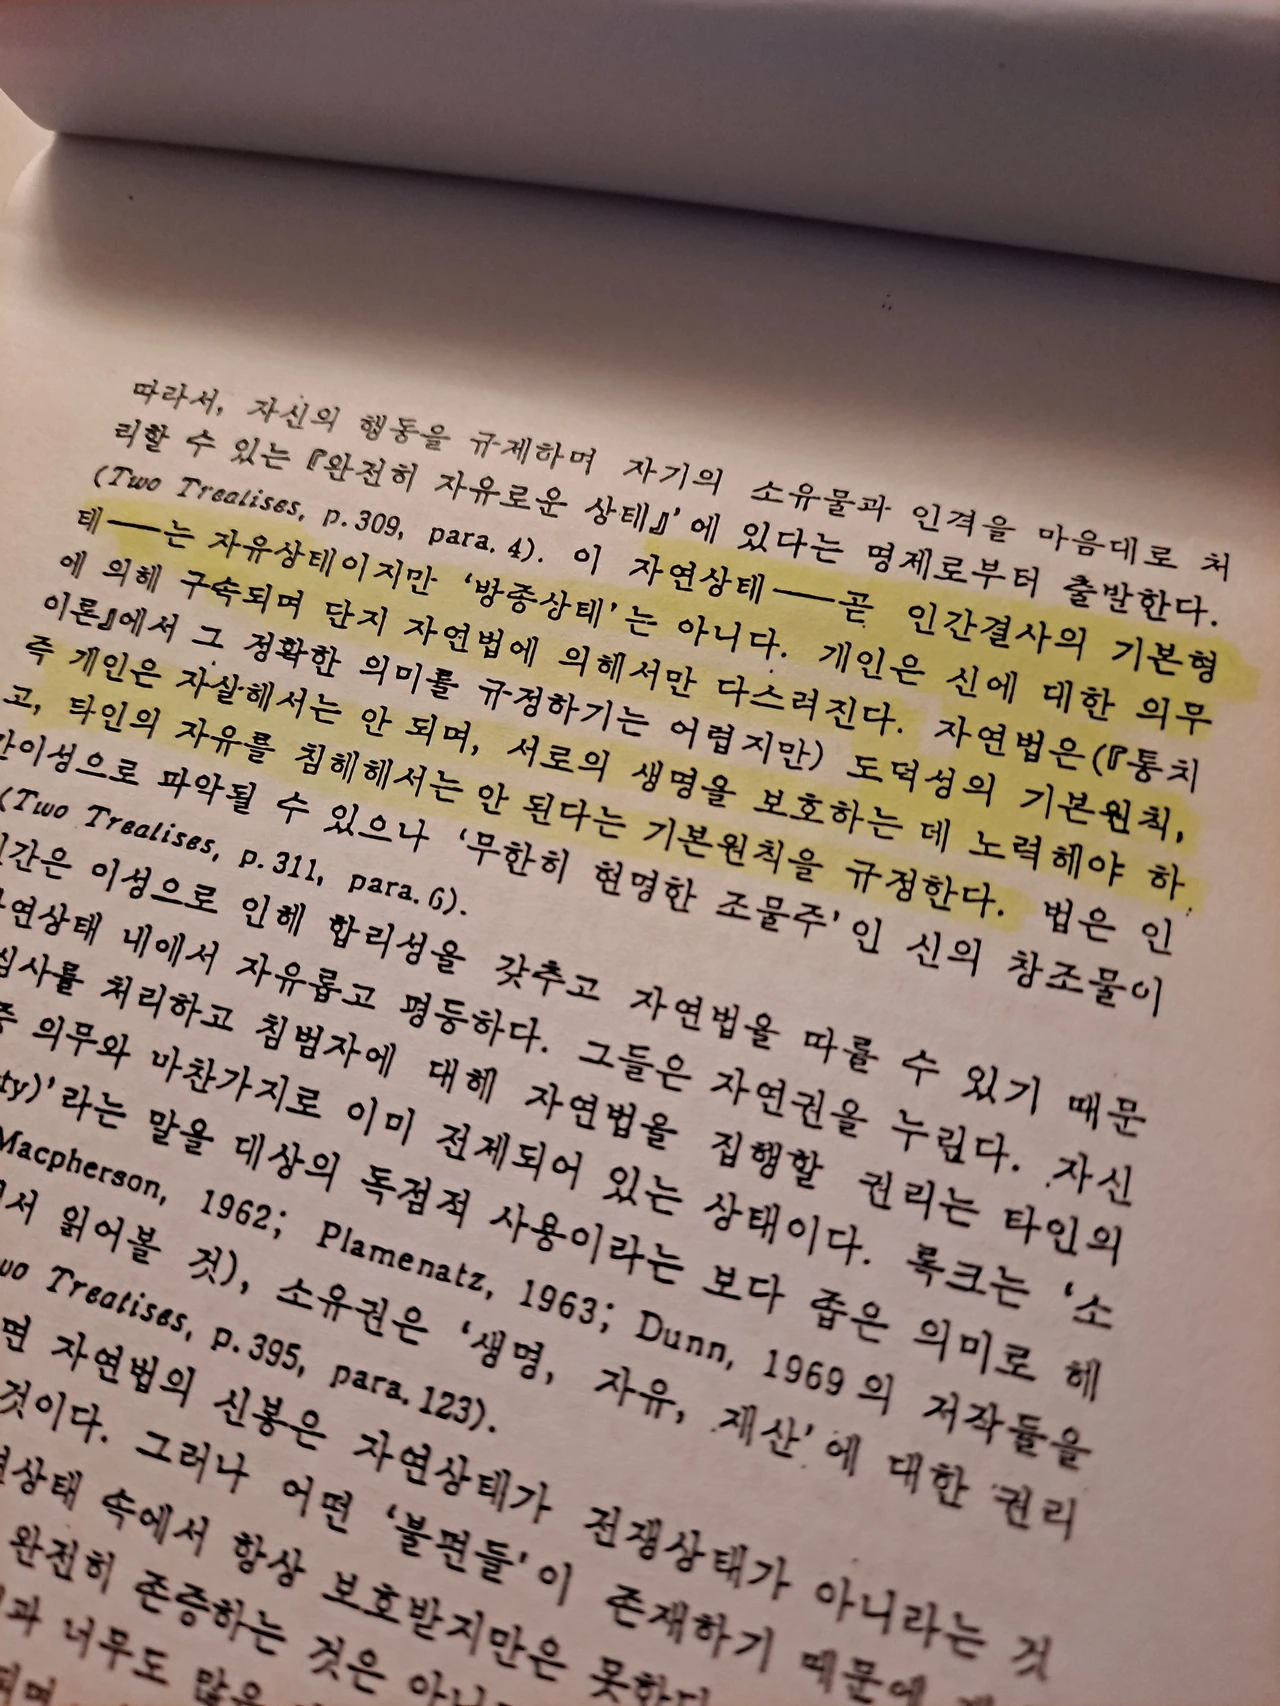 따라서, 자신의 행동을 규제하며 자기의 소유물과 인격을 마음대로 처
리할 수 있는 『완전히 자유로운 상태』'에 있다는 명제로부터 출발한다.
(Two Treatises, p. 309, para. 4). 이 자연상태──곧 인간결사의 기본형
태──는 자유상태이지만 '방종상태'는 아니다. 개인은 신에 대한 의무
에 의해 구속되며 단지 자연법에 의해서만 다스려진다. 자연법은(『통치
이론』에서 그 정확한 의미를 규정하기는 어렵지만) 도덕성의 기본원칙,
즉 개인은 자살해서는 안 되며, 서로의 생명을 보호하는 데 노력해야 하
고, 타인의 자유를 침해해서는 안 된다는 기본원칙을 규정한다. 법은 인
간이성으로 파악될 수 있으나 '무한히 현명한 조물주'인 신의 창조물이
(Two Treatises, p. 311, para. 6).
인간은 이성으로 인해 합리성을 갖추고 자연법을 따를 수 있기 때문
자연상태 내에서 자유롭고 평등하다. 그들은 자연권을 누린다. 자신
심사를 처리하고 침범자에 대해 자연법을 집행할 권리는 타인의
의무와 마찬가지로 이미 전제되어 있는 상태이다. 록크는 '소
ty)'라는 말을 대상의 독점적 사용이라는 보다 좁은 의미로 해
Macpherson, 1962; Plamenatz, 1963; Dunn, 1969의 저작들을
서 읽어볼 것), 소유권은 '생명, 자유, 재산'에 대한 권리
wo Treatises, p. 395, para. 123).
면 자연법의 신봉은 자연상태가 전쟁상태가 아니라는 것
것이다. 그러나 어떤 '불편들'이 존재하기 때문에
연상태 속에서 항상 보호받지만은 못한다
완전히 존중하는 것은 아니
과 너무도 많은